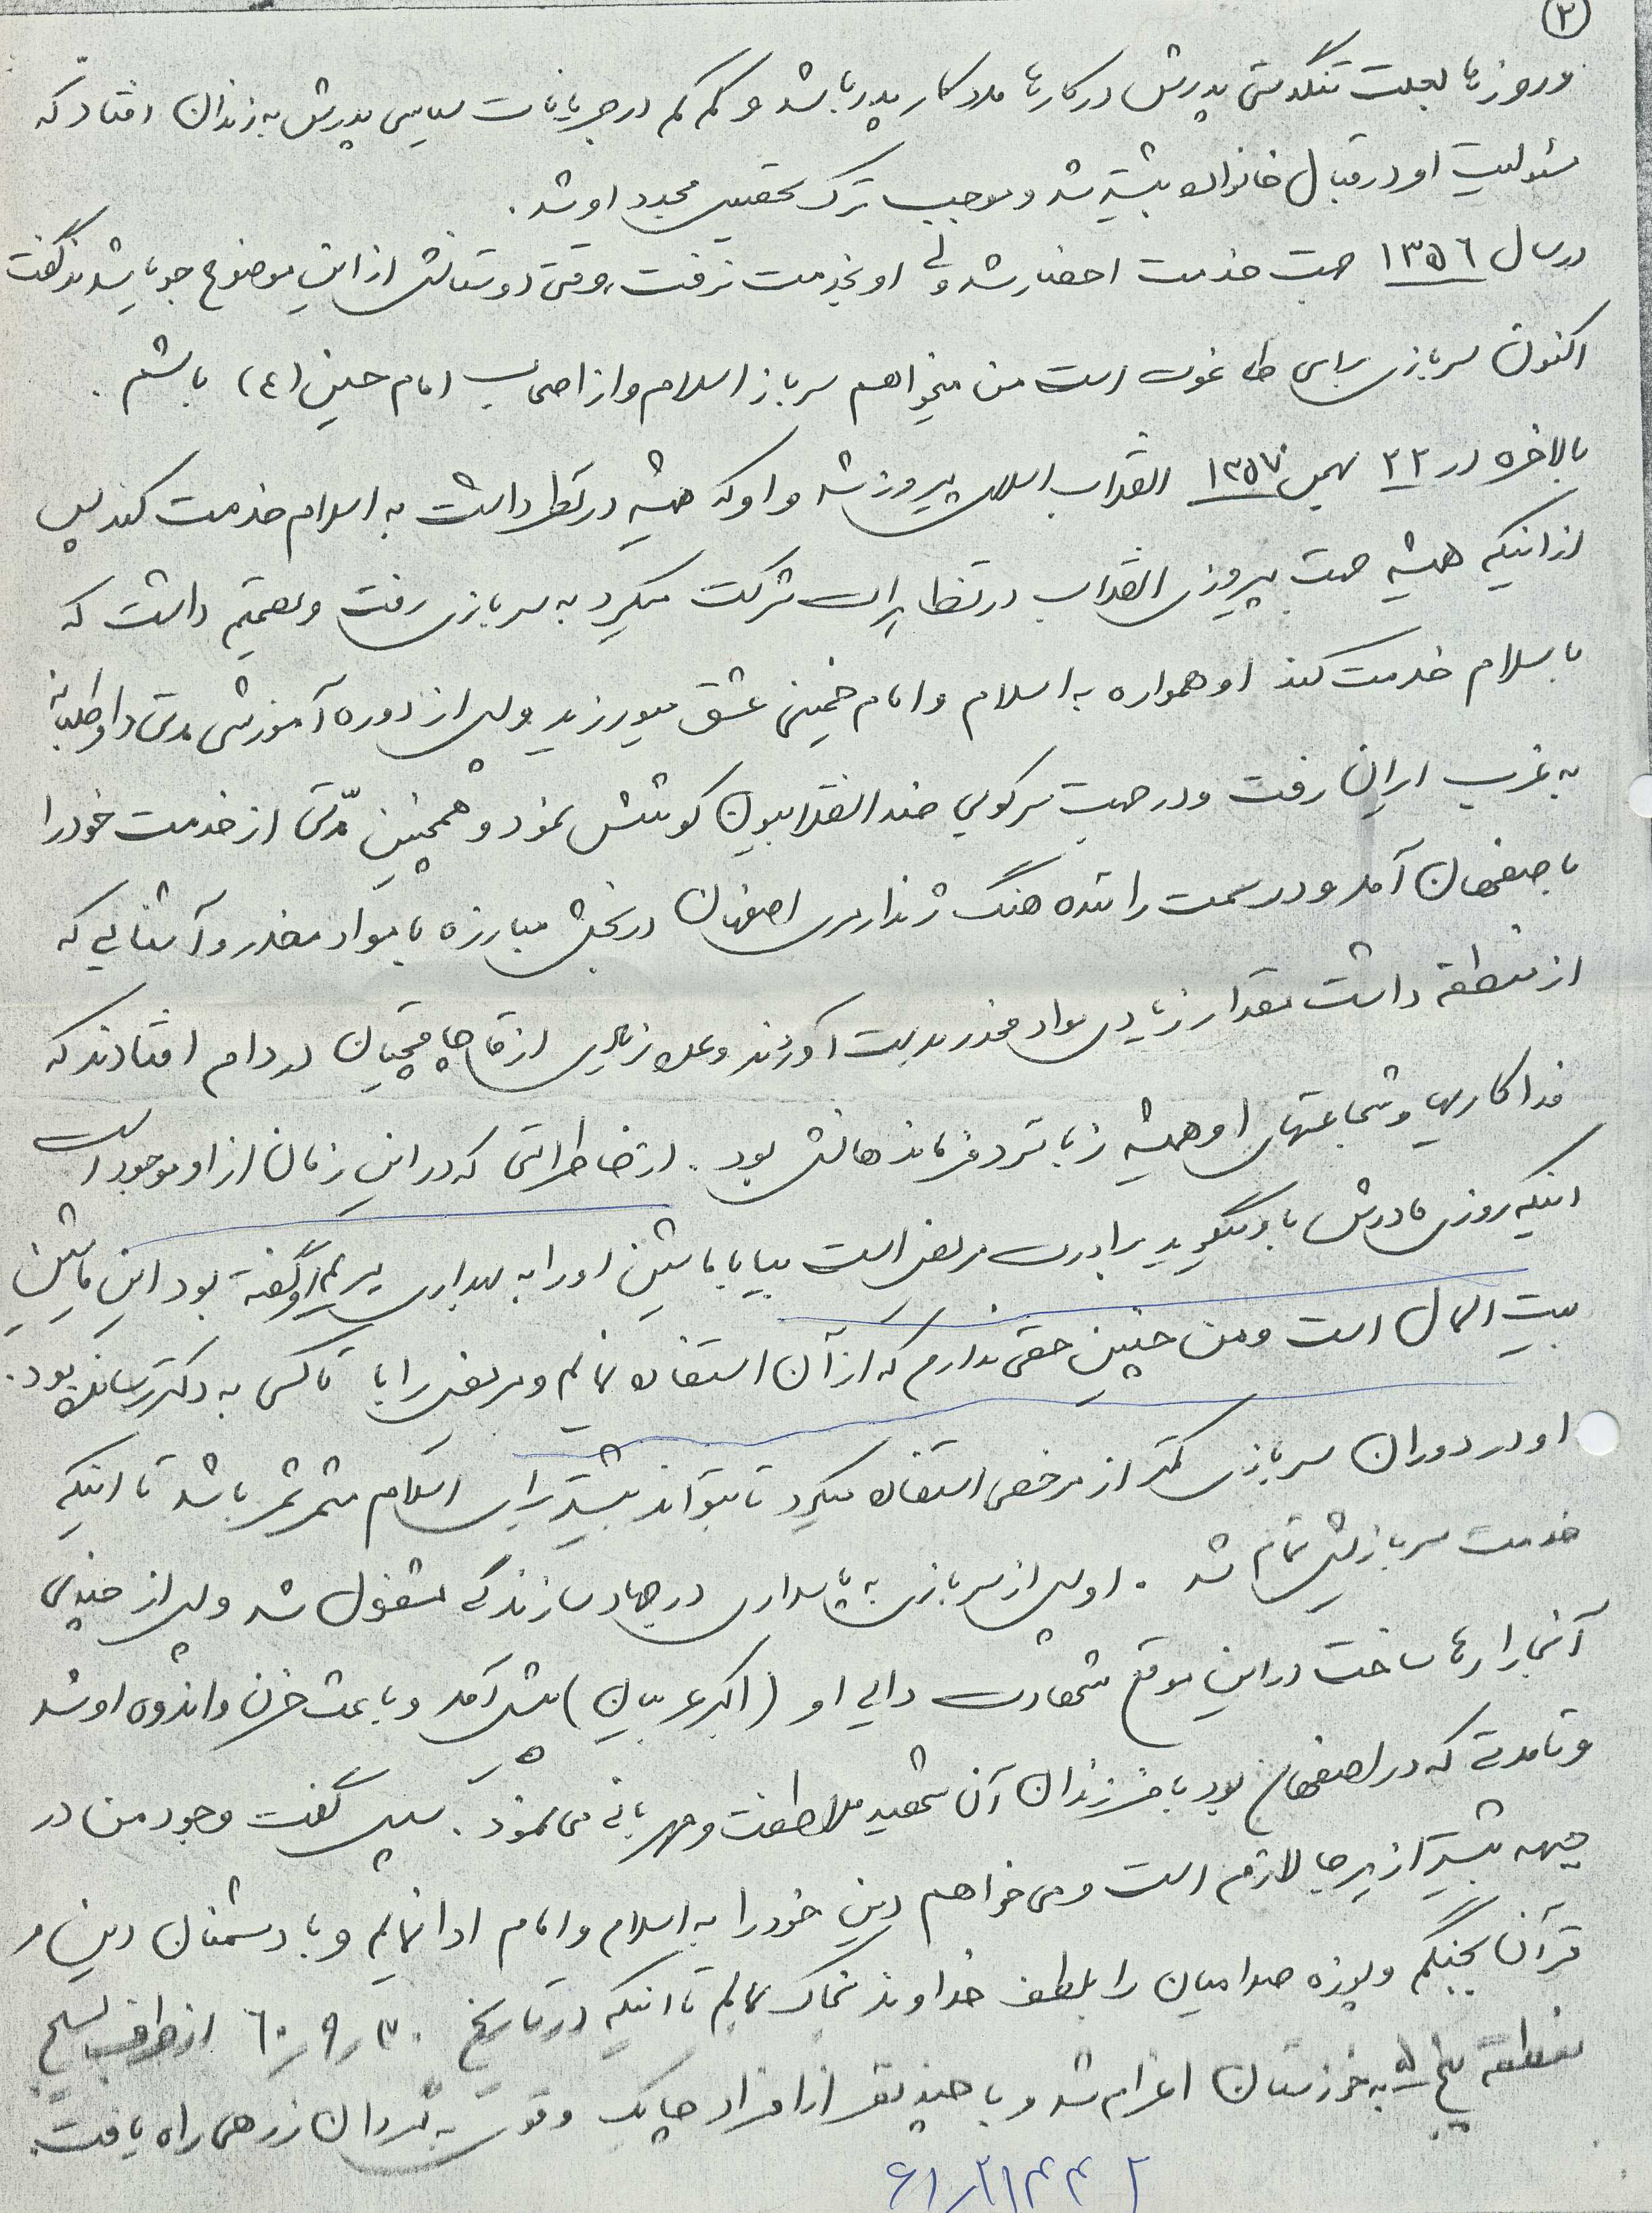 ۲
و روزها بعلت تنگدستی پدرش در کارها مددکار پدر باشد و کم کم در جریانات سیاسی پدرش به زندان افتاد که
مسئولیت او در قبال خانواده بیشتر شد و موجب ترک تحصیل مجدد او شد.
در سال ۱۳۵۶ جهت خدمت احضار شد ولی او بخدمت نرفت، وقتی دوستانش از این موضوع جویا شدند گفت
اکنون سربازی برای طاغوت است من میخواهم سرباز اسلام و از اصحاب امام حسین (ع) باشم.
بالاخره در ۲۲ بهمن ۱۳۵۷ انقلاب اسلامی پیروز شد و او که همیشه در نظر داشت به اسلام خدمت کند پس
از اینکه همیشه جهت پیروزی انقلاب در تظاهرات شرکت میکرد به سربازی رفت و تصمیم داشت که
باسلام خدمت کند او همواره به اسلام و امام خمینی عشق میورزید و پس از دوره آموزشی مدتی داوطلبانه
به غرب ایران رفت و در جهت سرکوبی ضد انقلابیون کوشش نمود و همچنین مدّتی از خدمت خود را
باصفهان آمد و در سمت راننده هنگ ژاندارمری اصفهان در بخش مبارزه با مواد مخدر و آشنایی که
از منطقه داشت مقدار زیادی مواد مخدر بدست آوردند و عده زیادی از قاچاقچیان در دام افتادند که
فداکاریها و شجاعتهای او همیشه زبانزد فرماندهانش بود. از خاطراتی که در این زمان از او موجود است
اینکه روزی مادرش باو میگوید برادرت مریض است بیا با ماشین او را به بهداری ببریم او گفته بود این ماشین
بیت المال است و من چنین حقی ندارم که از آن استفاده نمایم و مریض را با تاکسی به دکتر رسانده بود.
او در دوران سربازی کمتر از مرخصی استفاده میکرد تا بتواند بیشتر برای اسلام مثمر ثمر باشد تا اینکه
خدمت سربازیش تمام شد. او پس از سربازی به پاسداری در جهاد سازندگی مشغول شد و پس از چندی
آنجا را رها ساخت در این موقع شهادت دایی او (اکبر عربیان) پیش آمد و باعث حزن و اندوه او شد
و تا مدتی که در اصفهان بود با فرزندان آن شهید ملاطفت و مهربانی می نمود. سپس گفت وجود من در
جبهه بیشتر از هر جا لازم است و می خواهم دین خود را به اسلام و امام ادا نمایم و با دشمنان دین و
قرآن بجنگم و پوزه صدامیان را بلطف خداوند بخاک بمالم تا اینکه در تاریخ ۶۰/۹/۳۰ از طرف بسیج
منطقه پنج ۵ به خوزستان اعزام شد و با چند نفر از افراد چابک و قوی به گردان زرهی راه یافت.
۶۱/۲۱۴۴۲